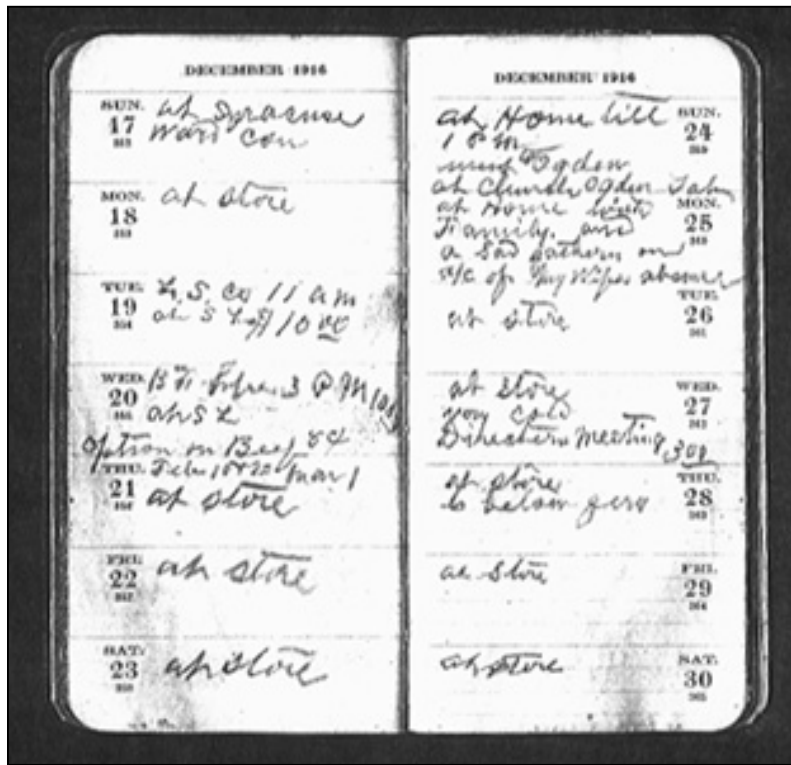 DECEMBER 1916
SUN.
17
at Syracuse
Ward Con
MON.
18
at store
TUE.
19
L. S. Co 11 am
at S L $10 00
WED.
20
B. F. 3 P M
at S L
option on Beef 84
THU.
21
Feb Mar 1
at store
FRI.
22
at store
SAT.
23
at store
DECEMBER 1916
SUN.
24
at Home till
1 P M
went Ogden
at Church Ogden Tab
MON.
25
at Home with
Family. and
a Sad gathern on
a/c of My Wifes absence
TUE.
26
at store
WED.
27
at store
very cold
Directors Meeting 3 00
THU.
28
at store
6 below zero
FRI.
29
at Store
SAT.
30
at store